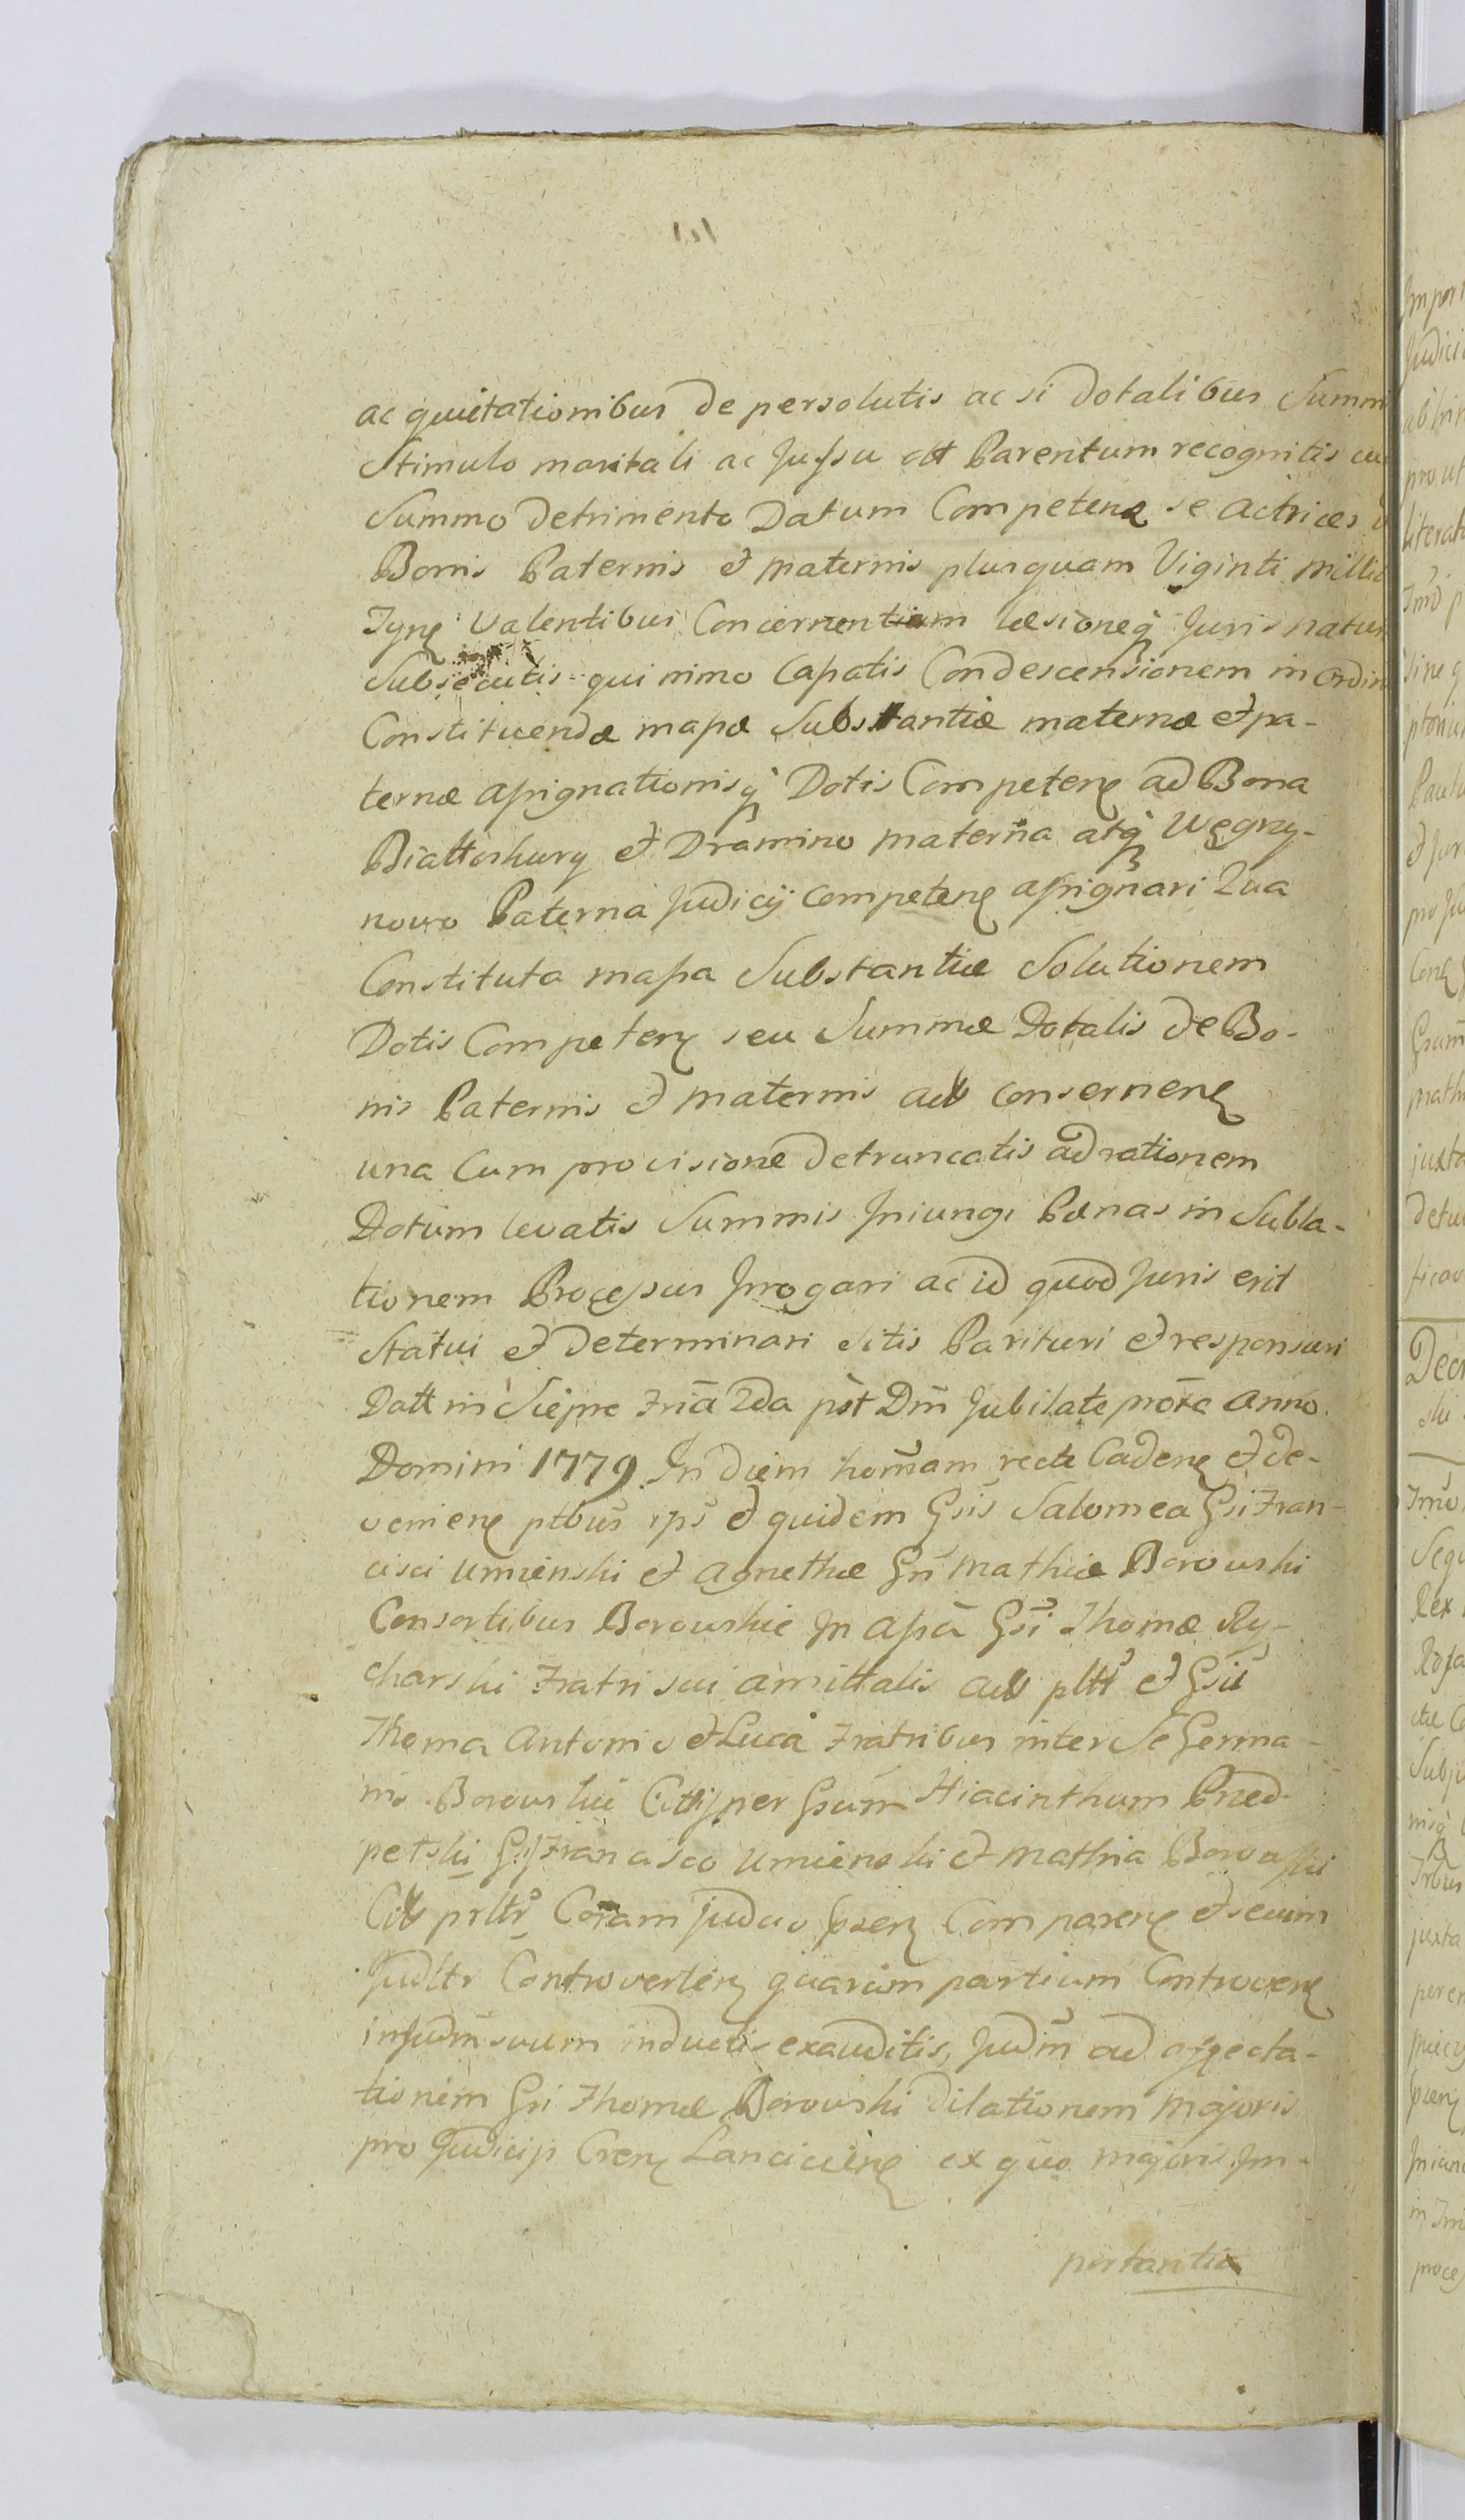 ac quietationibus de persolutis ac si dotalibus Summi
Stimulo maritali ac Jussu att Parentum recognitis cu
Summo detrimento Datum Competenꝫ se actrices
Bonis Paternis et maternis plusquam Viginti mille
Tynꝫ valentibus Concernentium læsioneqꝫ Juris natur
Subsecutis quinimo Capatis Condescensionem in ordin
Constituendæ massæ Substantiæ maternæ et pa-
ternæ assignationisqꝫ Dotis Competenꝫ ad Bona
Białtoskury et Dramino materna atqꝫ Węgrzy-
nowo Paterna Judicij competenꝫ assignari Qua
Constituta massa Substantiæ Solutionem
Dotis Competenꝫ seu Summæ Dotalis de Bo-
nis Paternis et maternis act consernenꝫ
una Cum provisione detruncatis ad rationem
Dotum levatis Summis Iniungi Pænas in Subla-
tionem Processus Irrogari ac id quod Juris erit
Statui et determinari Sitis Parituri et responsuri
Datt in Sieprc Fria 2da pst Dm Jubilate prõxe anno
Domini 1779 In diem hornam recte Cadenꝫ et de-
venienꝫ ptbus ips et quidem Gsis Salomea Gsi Fran-
cisci Umienski et Agnethæ Gsi Mathiæ Borowski
Consortibus Borowskie In assa Gsi Thomæ Ry-
charski Fratri sui amittalis act pltt et Gsis
Thoma Antonio et Luca Fratribus inter Se Germa-
nis Borowskie Citt per Gsum Hiacinthum Pned-
petski Gsi Francisco Umienski et Mathia Borowski
Citt prltr Coram judicio psenꝫ Comparenꝫ et secum
Judltr Controvertenꝫ quarum partium Controvenꝫ
in Judm suum inductis exauditis, Judm ad affecta-
tionem Gsi Thomæ Borowski dilationem majoris
pro Judicijs Crenꝫ Lancicienꝫ ex quo majoris Im-
portantia